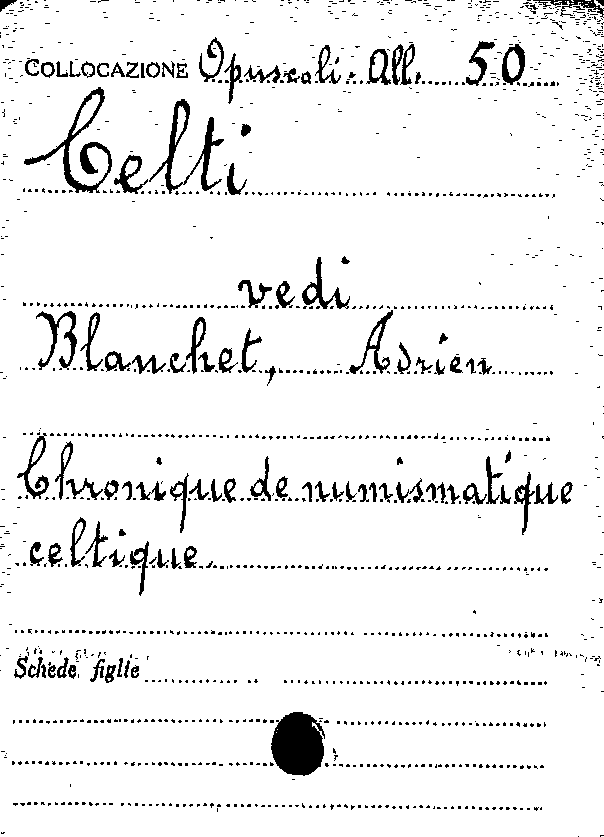 COLLOCAZIONE Opuscoli. All. 50
Celti
vedi
Blanchet, Adrien
Chronique de numismatique
celtique.
Schede figlie